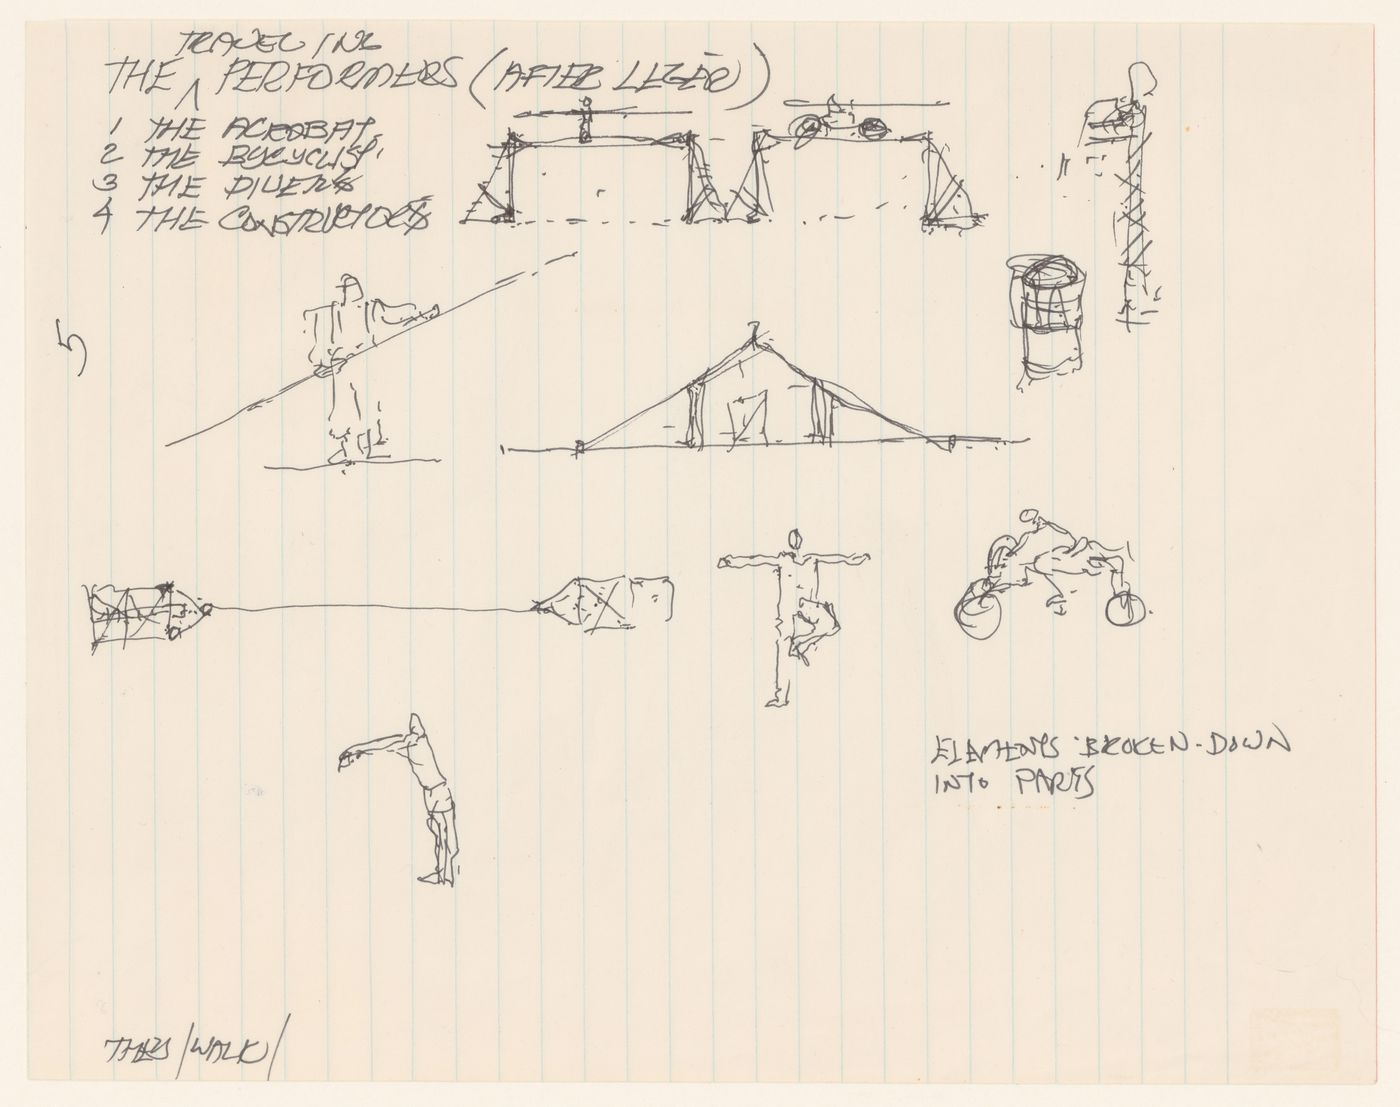 TRAVELING
THE ∧ PERFORMERS (AFTER LEGÉR)
1 THE ACROBAT.
2 THE BYCYCLIST.
3 THE DIVERS
4 THE CONSTRUCTORS
5
ELEMENTS BROKEN-DOWN
INTO PARTS
/WALK/